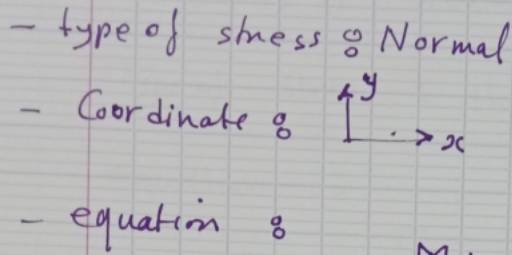 - type of stress : Normal
- Coordinate : y x
- equation :